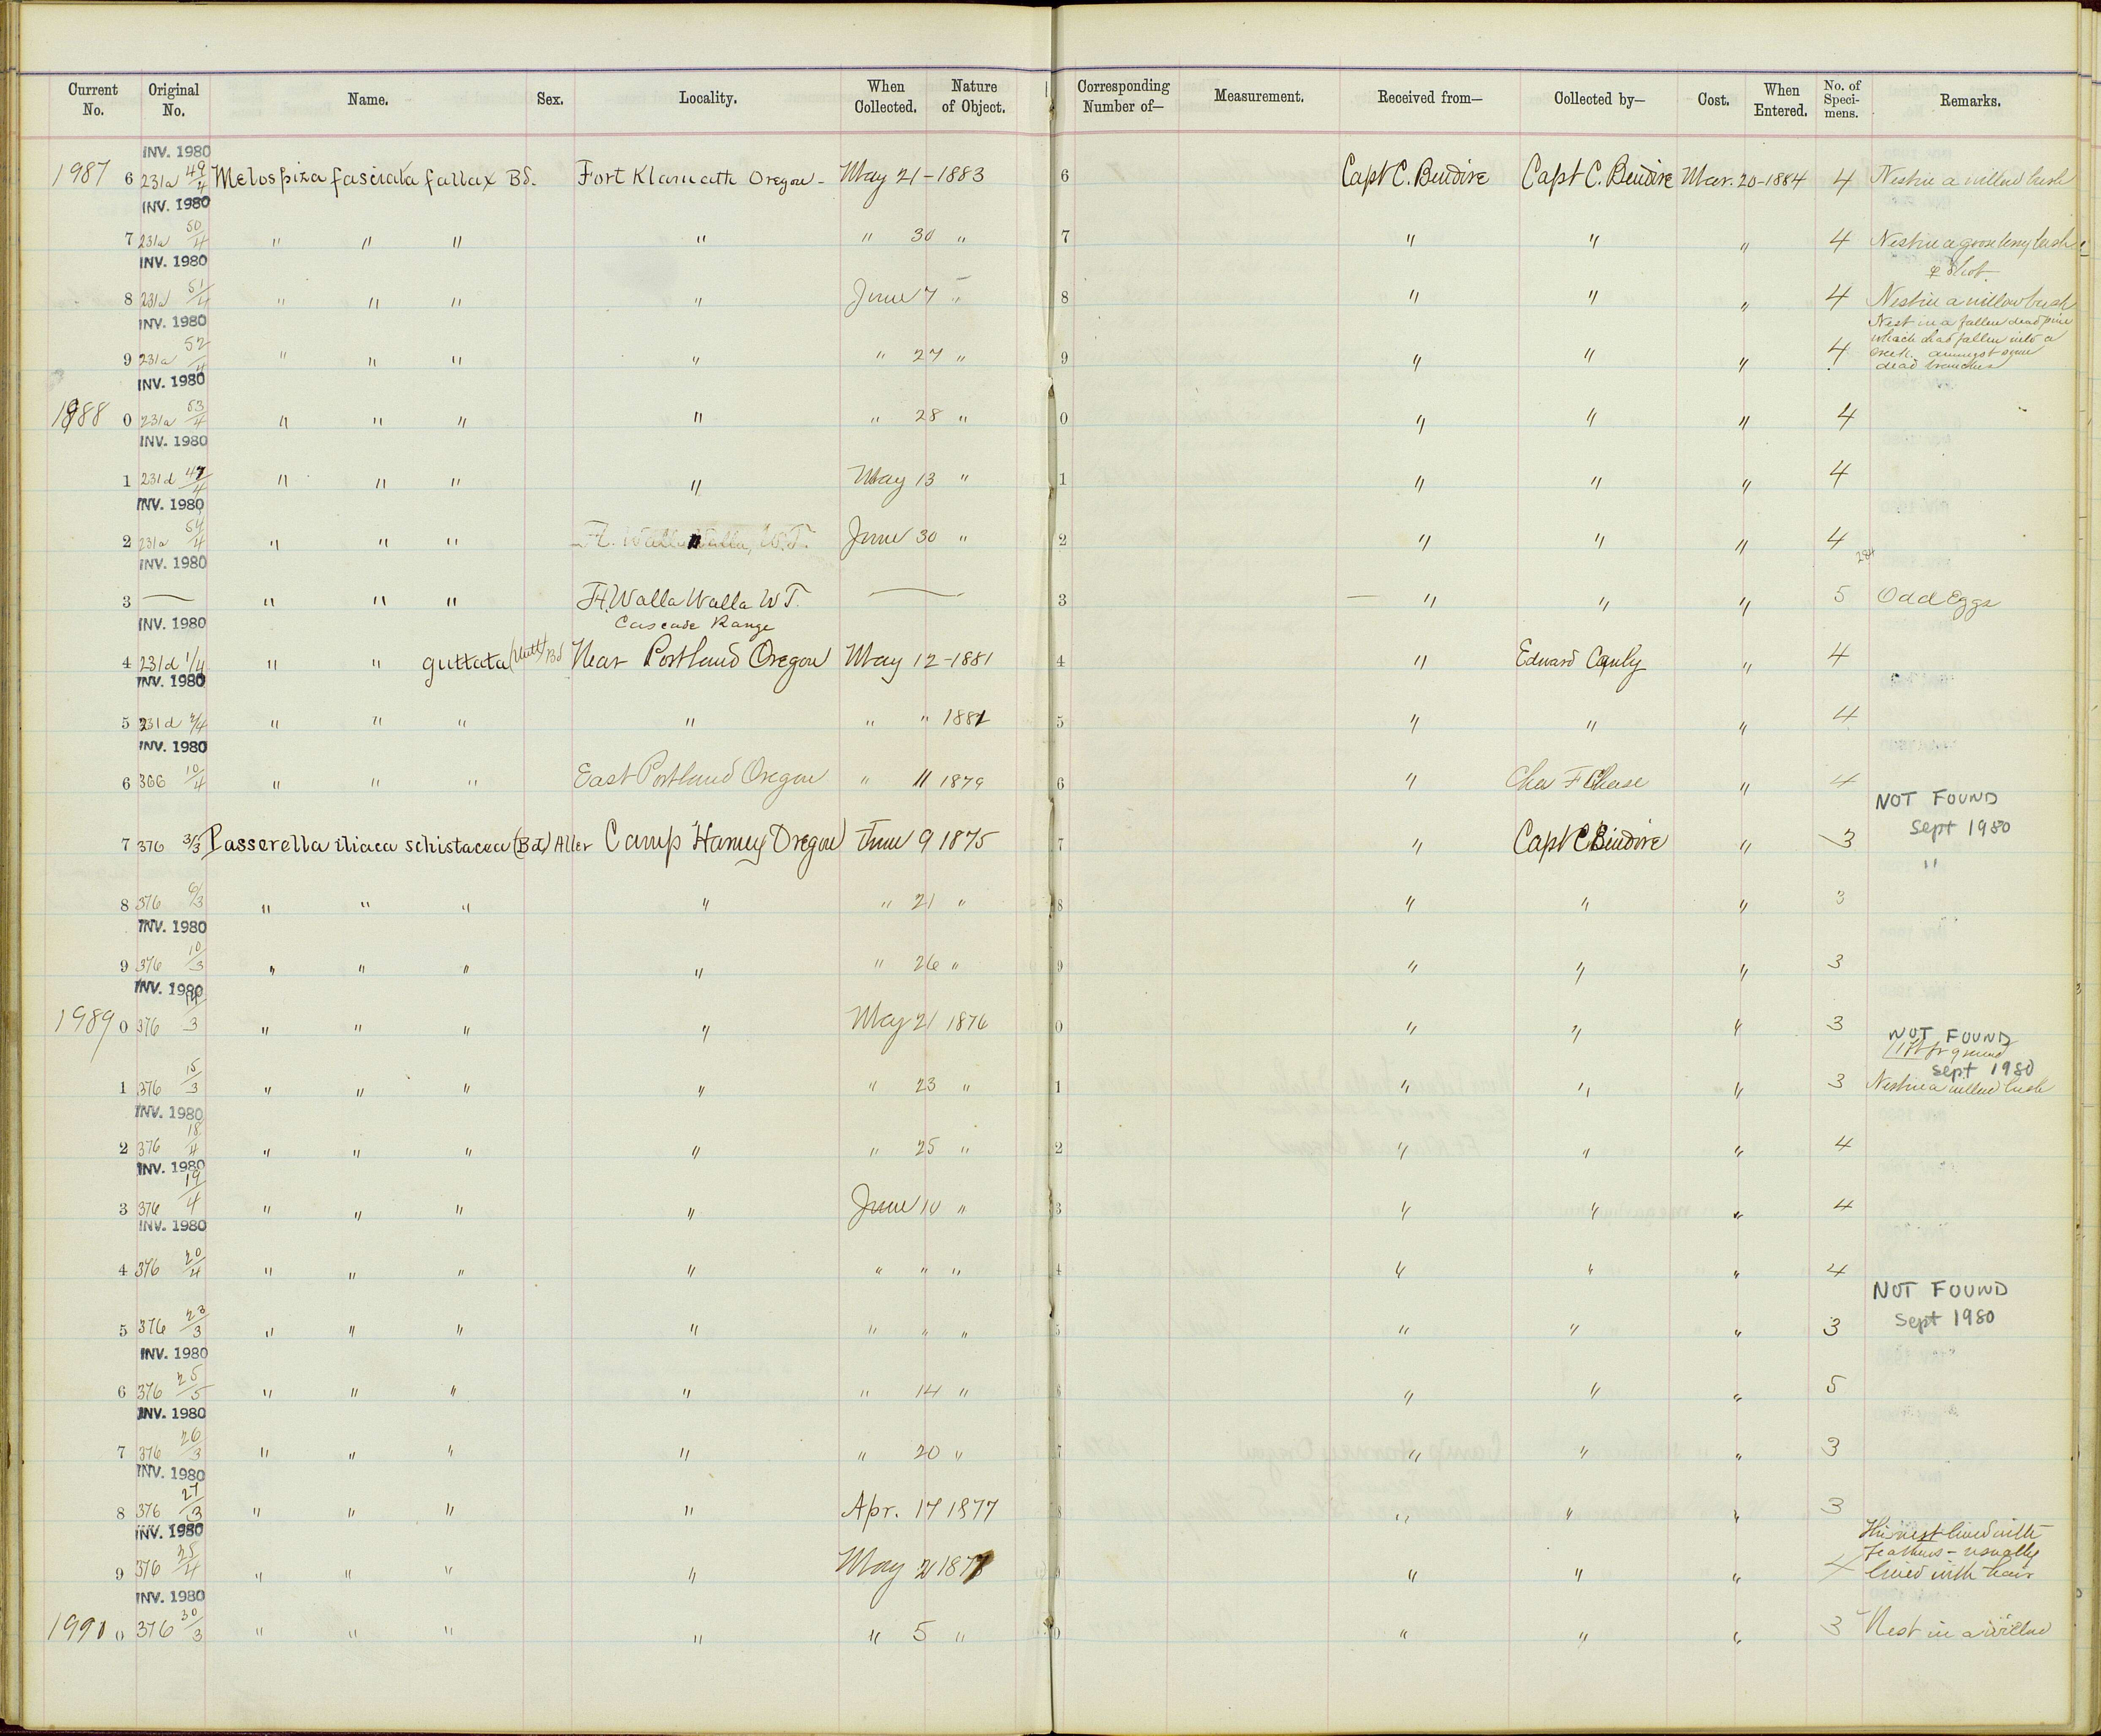 Current No. Original No. Name. Sex. Locality. When Collected. Nature of Object. Corresponding Number of— Measurement. Received from— Collected by— Cost. When Entered. No. of Speci- mens. Remarks.
INV. 1980
1987 6 231a 49/4 Melospiza fasciata fallax Bd. Fort Klamath Oregon - May 21 - 1883 6 Capt C. Bendire Capt C. Bendire Mar. 20-1884 4 Nest in a willow bush
INV. 1980
7 231a 50/4 " " " " " 30 " 7 " " " 4 Nest in a gooseberry bush
INV. 1980 ♀ shot
8 231a 51/4 " " " " June 7 " 8 " " " 4 Nest in a willow bush
INV. 1980
9 231a 52/4 " " " " " 27 " 9 " " " 4 Nest in a fallen dead pine
which had fallen into a
creek amongst some
dead branches
INV. 1980
1988 0 231a 53/4 " " " " " 28 " 0 " " " 4
INV. 1980
1 231d 47/4 " " " " May 13 " 1 " " " 4
INV. 1980
2 231a 54/4 " " " Ft. Walla Walla, W.T. " June 30 " 2 " " " 4
INV. 1980 284
3 — " " " Ft. Walla Walla W T. — 3 — " " " 5 Odd Eggs
INV. 1980 Cascade Range
4 231d 1/4 " " guttata (Nutt) Bd Near Portland Oregon May 12-1881 4 " Edward " 4
INV. 1980
5 231d 2/4 " " " " " " 1881 5 " " " 4
INV. 1980
6 366 10/4 " " " East Portland Oregon " " 1879 6 " Chas F Chase " 4
NOT FOUND
Sept 1980
7 376 3/3 Passerella iliaca schistacea (Bd) Allen Camp Harney Oregon June 9 1875 7 " Capt C Bendire " 3
"
8 376 6/3 " " " " " 21 " 8 " " " 3
INV. 1980
9 376 10/3 " " " " " 26 " 9 " " " 3
INV. 1980
1989 0 376 14/3 " " " " May 21 1876 0 " " " 3
NOT FOUND
Sept 1980
1 376 15/3 " " " " " 23 " 1 " " " 3 Nest in a willow bush
INV. 1980
2 376 18/4 " " " " " 25 " 2 " " " 4
INV. 1980
3 376 19/4 " " " " June 10 " 3 " " " 4
INV. 1980
4 376 20/4 " " " " " " " 4 " " " 4
NOT FOUND
Sept 1980
5 376 23/3 " " " " " " " 5 " " " 3
INV. 1980
6 376 25/5 " " " " " 14 " 6 " " " 5
INV. 1980
7 376 26/3 " " " " " 20 " 7 " " " 3
INV. 1980
8 376 27/3 " " " " Apr. 17 1877 8 " " " 3
INV. 1980
9 376 " " " " May 1877 9 " " " 4 nest lined with
feathers - usually
lined with hair
INV. 1980
1990 0 376 30/3 " " " " " 5 " 0 " " " 3 Nest in a willow